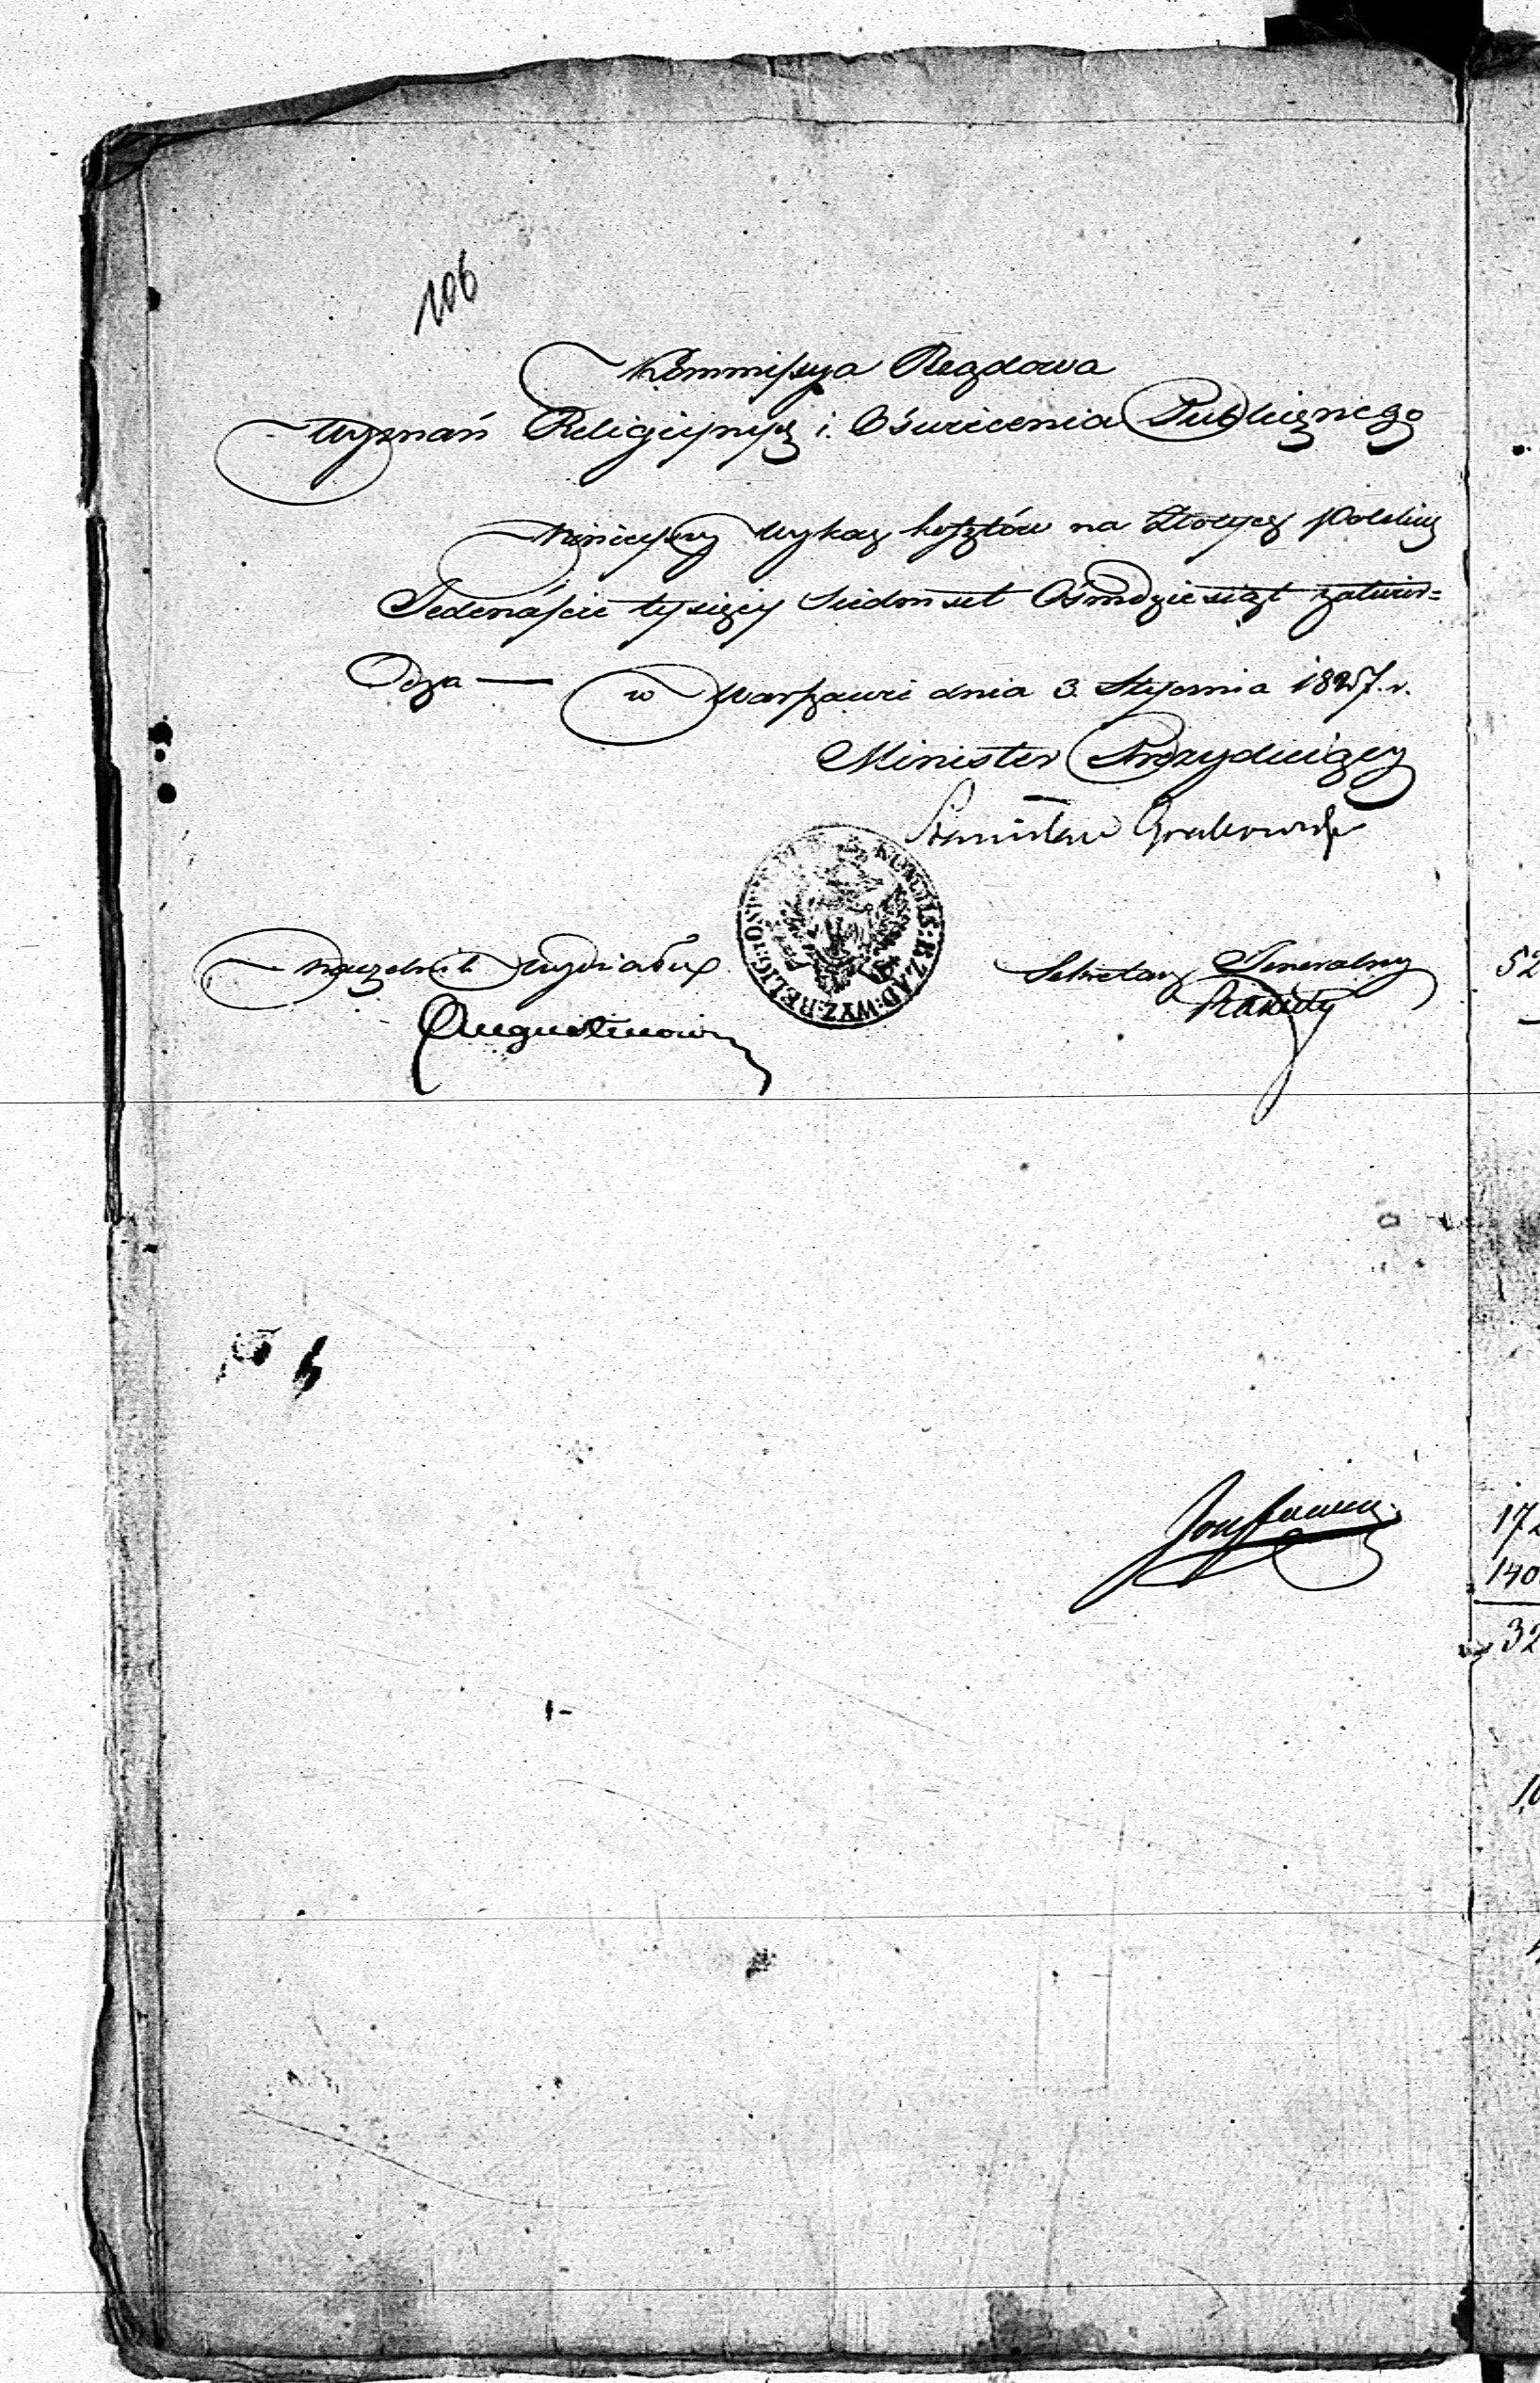 106
Kommissya Rządowa
Wyznań Religijnych i Oświecenia Publicznego
Ninieyszy Wykaz kosztów na Złotych Polskich
Jedenaście tysięcy Siedmset Ośmdziesiąt zatwier=
dza — w Warszawie dnia 3. Stycznia 1827. r.
Minister Prezyduiący
Stanisław Grabowski
KOMMIS: RZĄD: WYZ: RELIG: i OŚW:
Naczelnik Wydziału
Sekretarz Jeneralny
Augustinowicz
52
172
140
32